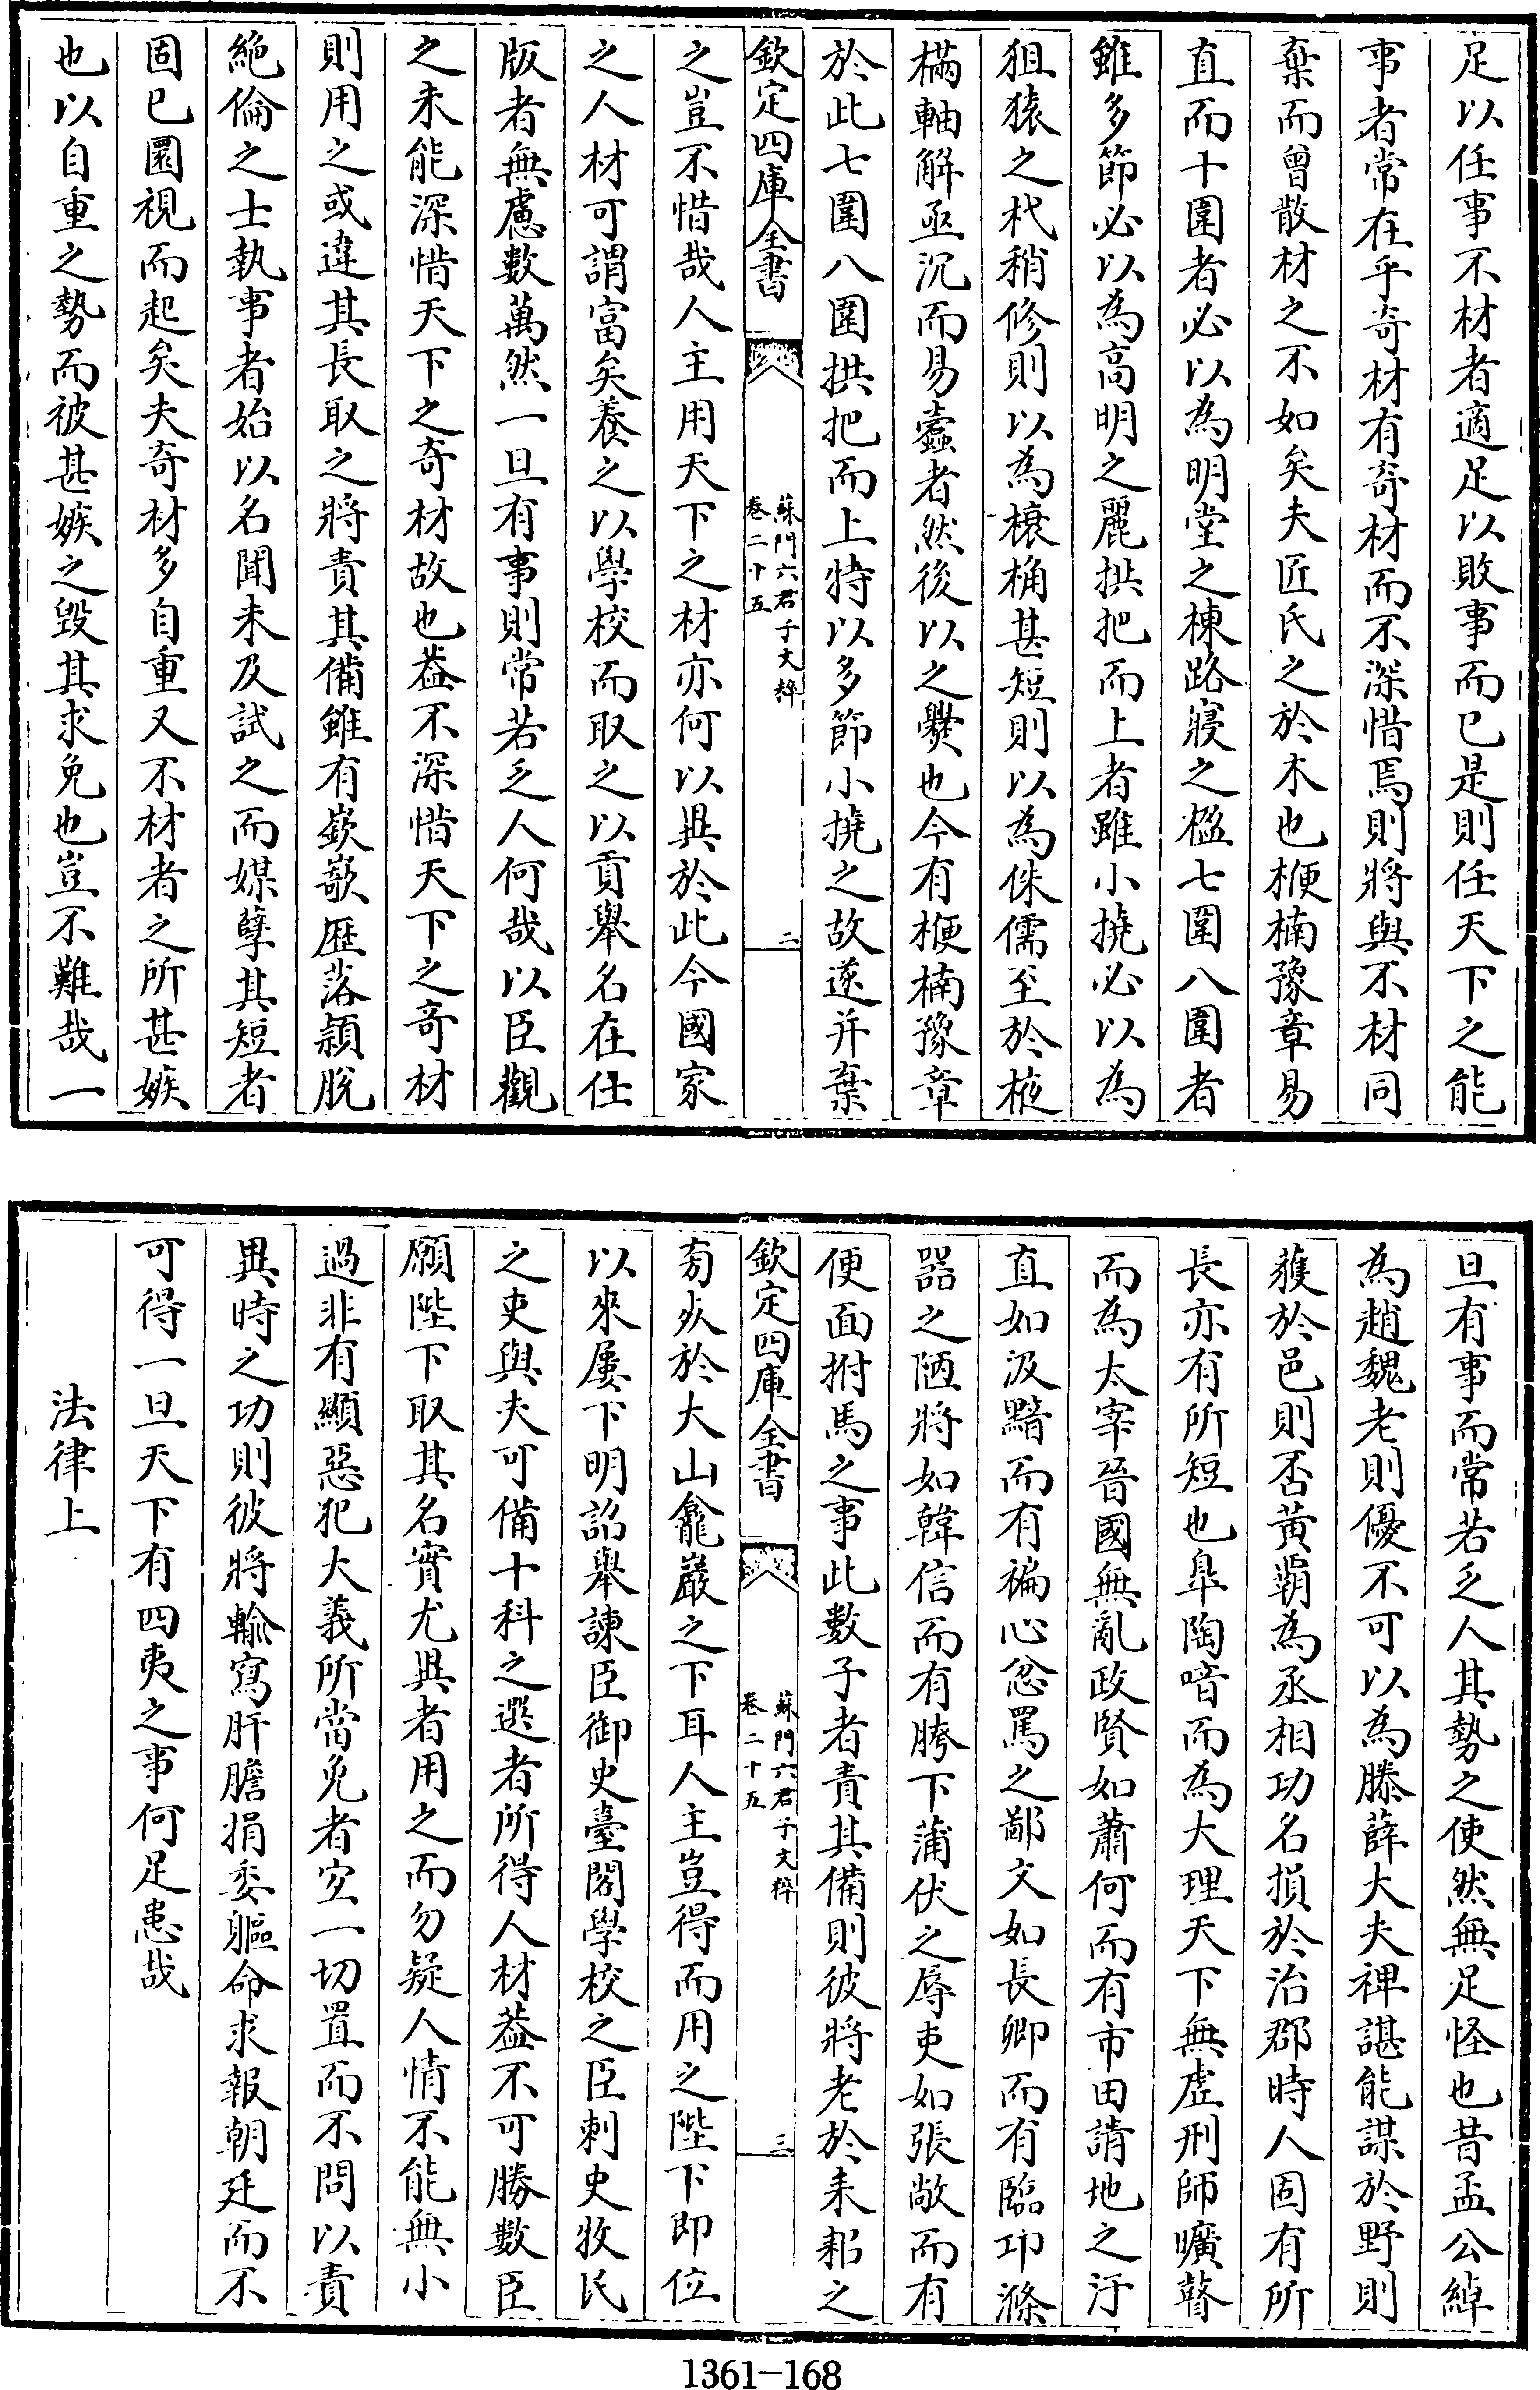 足以任事不材者適足以敗事而已是則任天下之能
事者常在乎奇材有奇材而不深惜焉則將與不材同
棄而曾散材之不如矣夫匠氏之於木也楩楠豫章易
直而十圍者必以為明堂之棟路寢之楹七圍八圍者
雖多節必以為高明之麗拱把而上者雖小撓必以為
狙猿之杙稍修則以為榱桷甚短則以為侏儒至於液
樠軸解亟沉而易蠹者然後以之爨也今有楩楠豫章
於此七圍八圍拱把而上特以多節小撓之故遂并棄
欽定四庫全書
蘇門六君子文粹
卷二十五
二
之豈不惜哉人主用天下之材亦何以異於此今國家
之人材可謂富矣養之以學校而取之以貢舉名在仕
版者無慮數萬然一旦有事則常若乏人何哉以臣觀
之未能深惜天下之奇材故也葢不深惜天下之奇材
則用之或違其長取之將責其備雖有嶔㟢歴落頴脫
絶倫之士執事者始以名聞未及試之而媒孽其短者
固已圜視而起矣夫奇材多自重又不材者之所甚嫉
也以自重之勢而被甚嫉之毀其求免也豈不難哉一
旦有事而常若乏人其勢之使然無足怪也昔孟公綽
為趙魏老則優不可以為滕薛大夫裨諶能謀於野則
獲於邑則否黃霸為丞相功名損於治郡時人固有所
長亦有所短也臯陶喑而為大理天下無虐刑師曠瞽
而為太宰晉國無亂政賢如蕭何而有市田請地之汙
直如汲黯而有褊心忿罵之鄙文如長卿而有臨卭滌
器之陋將如韓信而有胯下蒲伏之辱吏如張敞而有
便面拊馬之事此數子者責其備則彼將老於耒耜之
欽定四庫全書
蘇門六君子文粹
卷二十五
三
蒭㸃於大山龕巖之下耳人主豈得而用之陛下即位
以來屢下明詔舉諫臣御史臺閣學校之臣刺史牧民
之吏與夫可備十科之選者所得人材葢不可勝數臣
願陛下取其名實尤異者用之而勿疑人情不能無小
過非有顯惡犯大義所當免者宜一切置而不問以責
異時之功則彼將輸寫肝膽捐委軀命求報朝廷而不
可得一旦天下有四夷之事何足患哉
法律上
1361-168